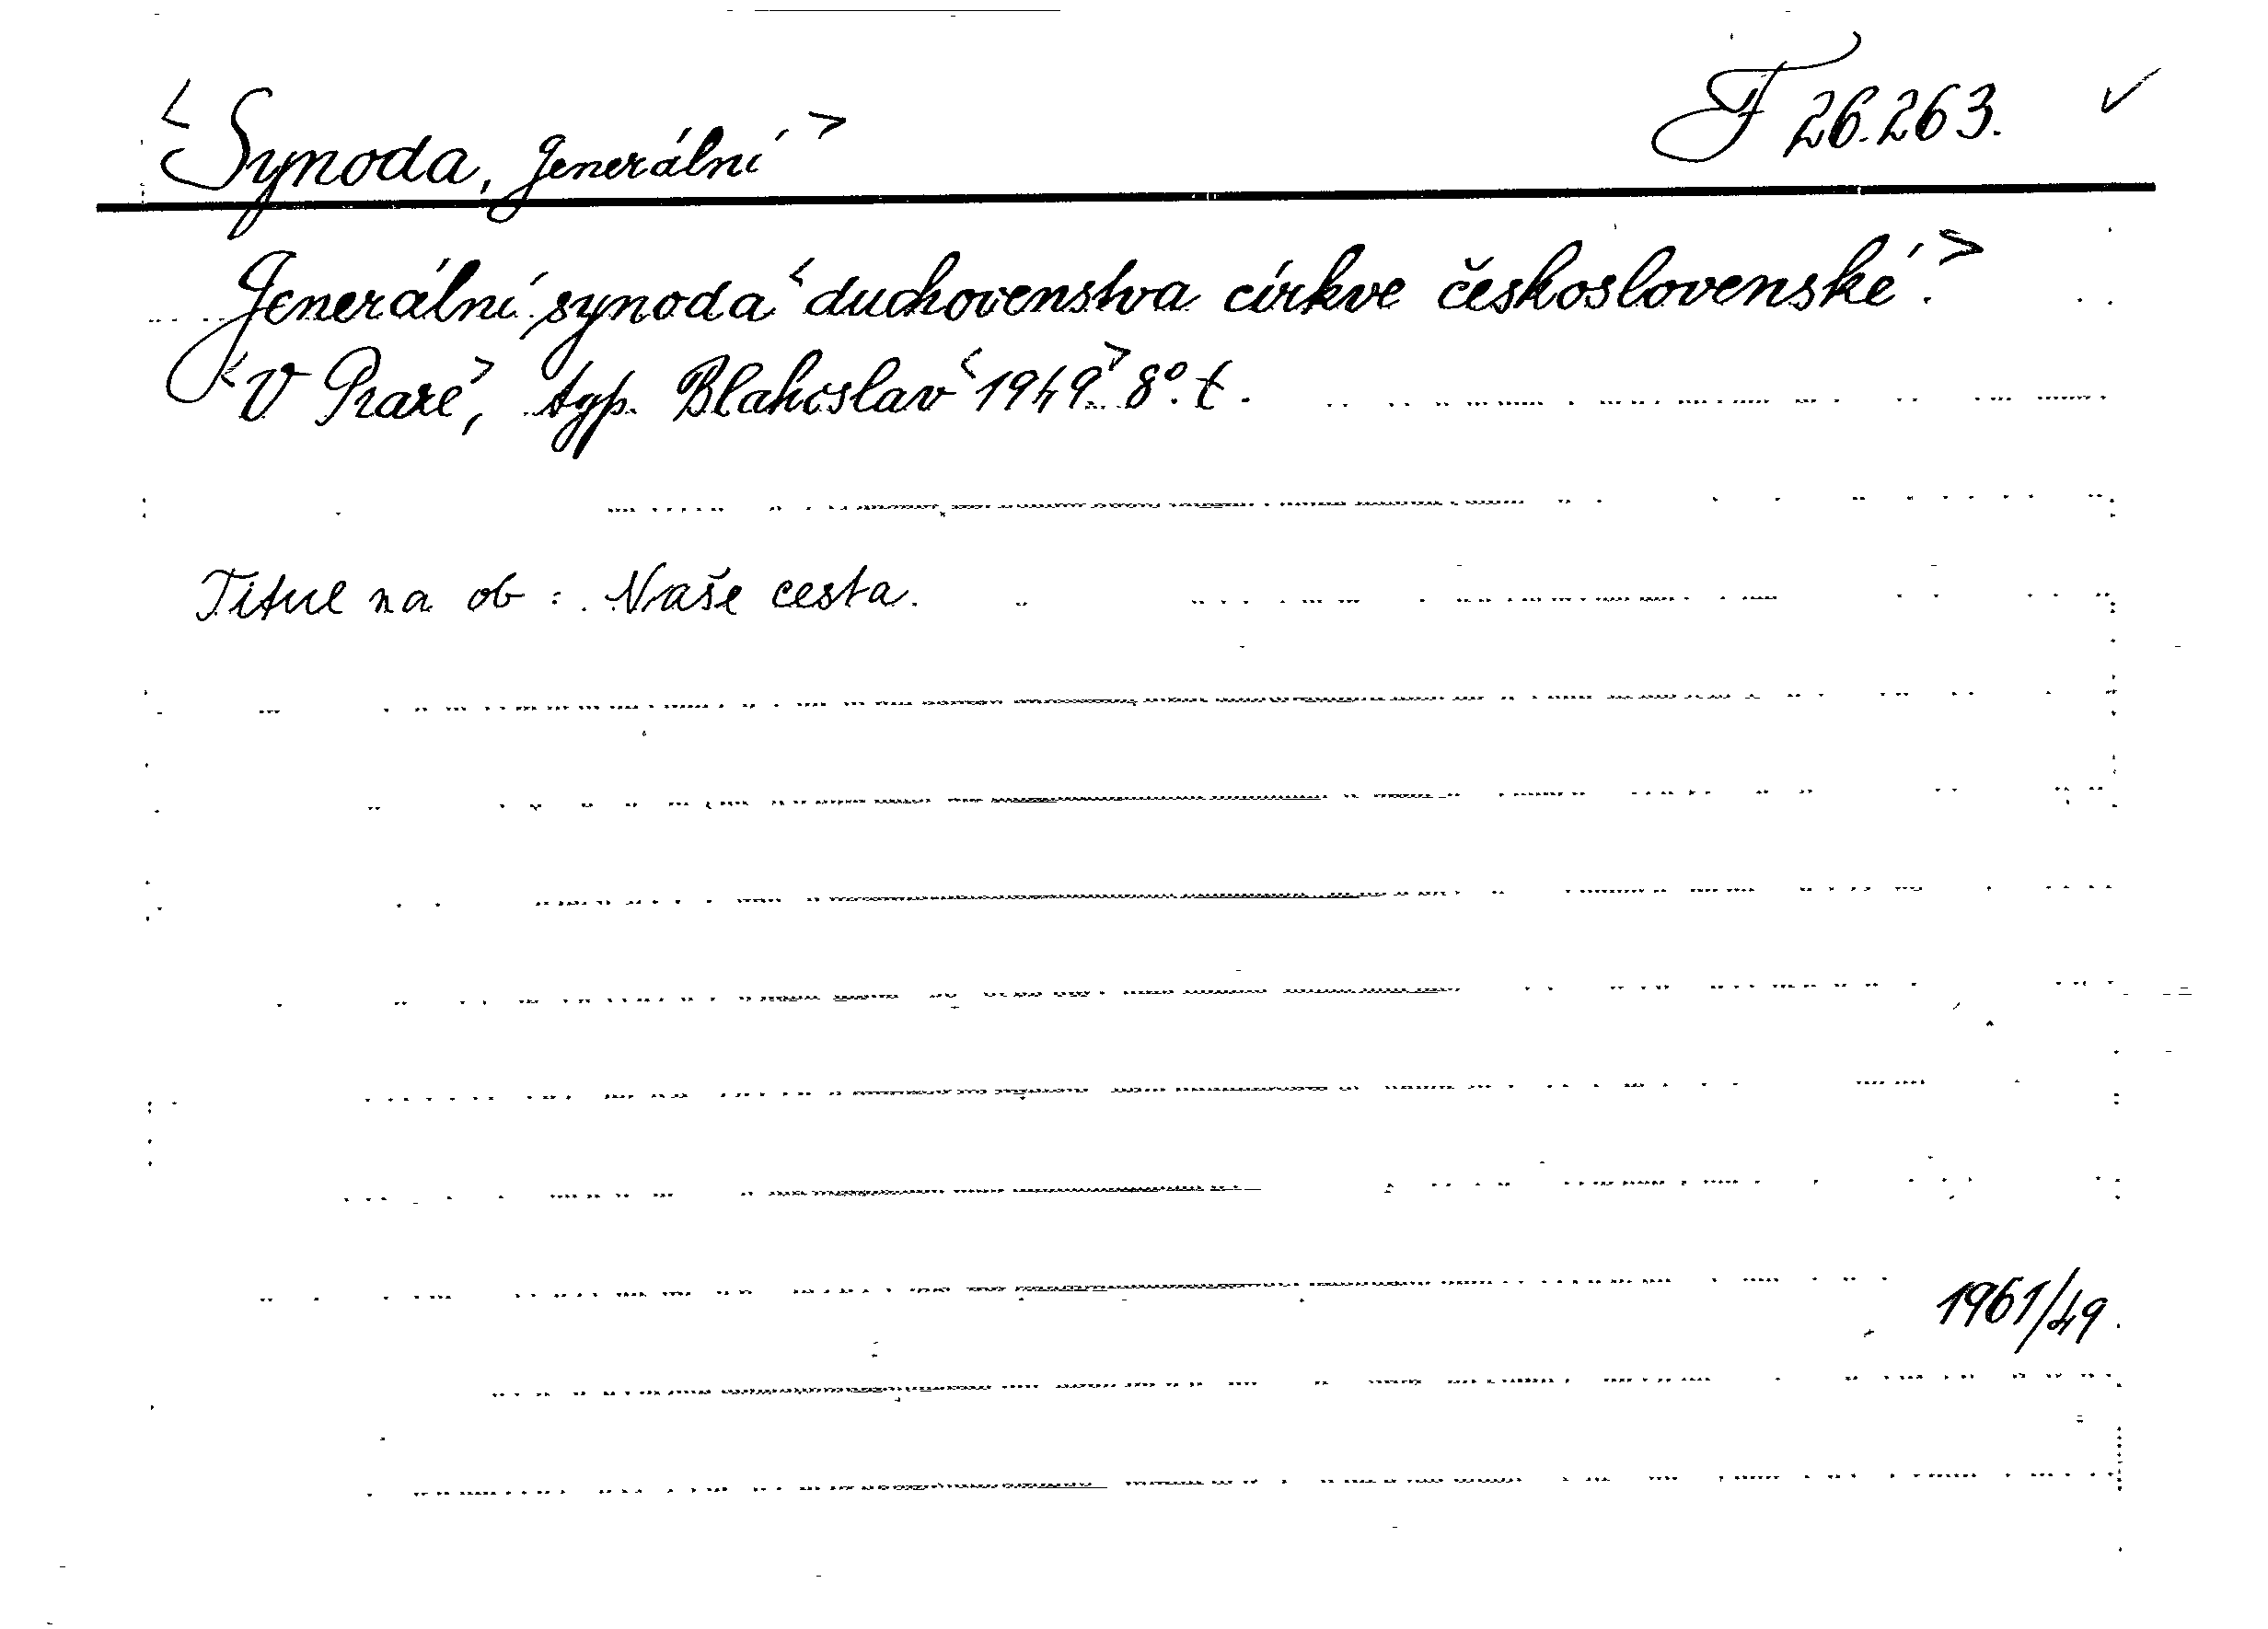 <Synoda, generální> F 26.263. ✓
Generální synoda <duchovenstva církve československé.>
<V Praze>, typ. Blahoslav <1949> 8°. t.
Titul na ob: Naše cesta.
1961/49.